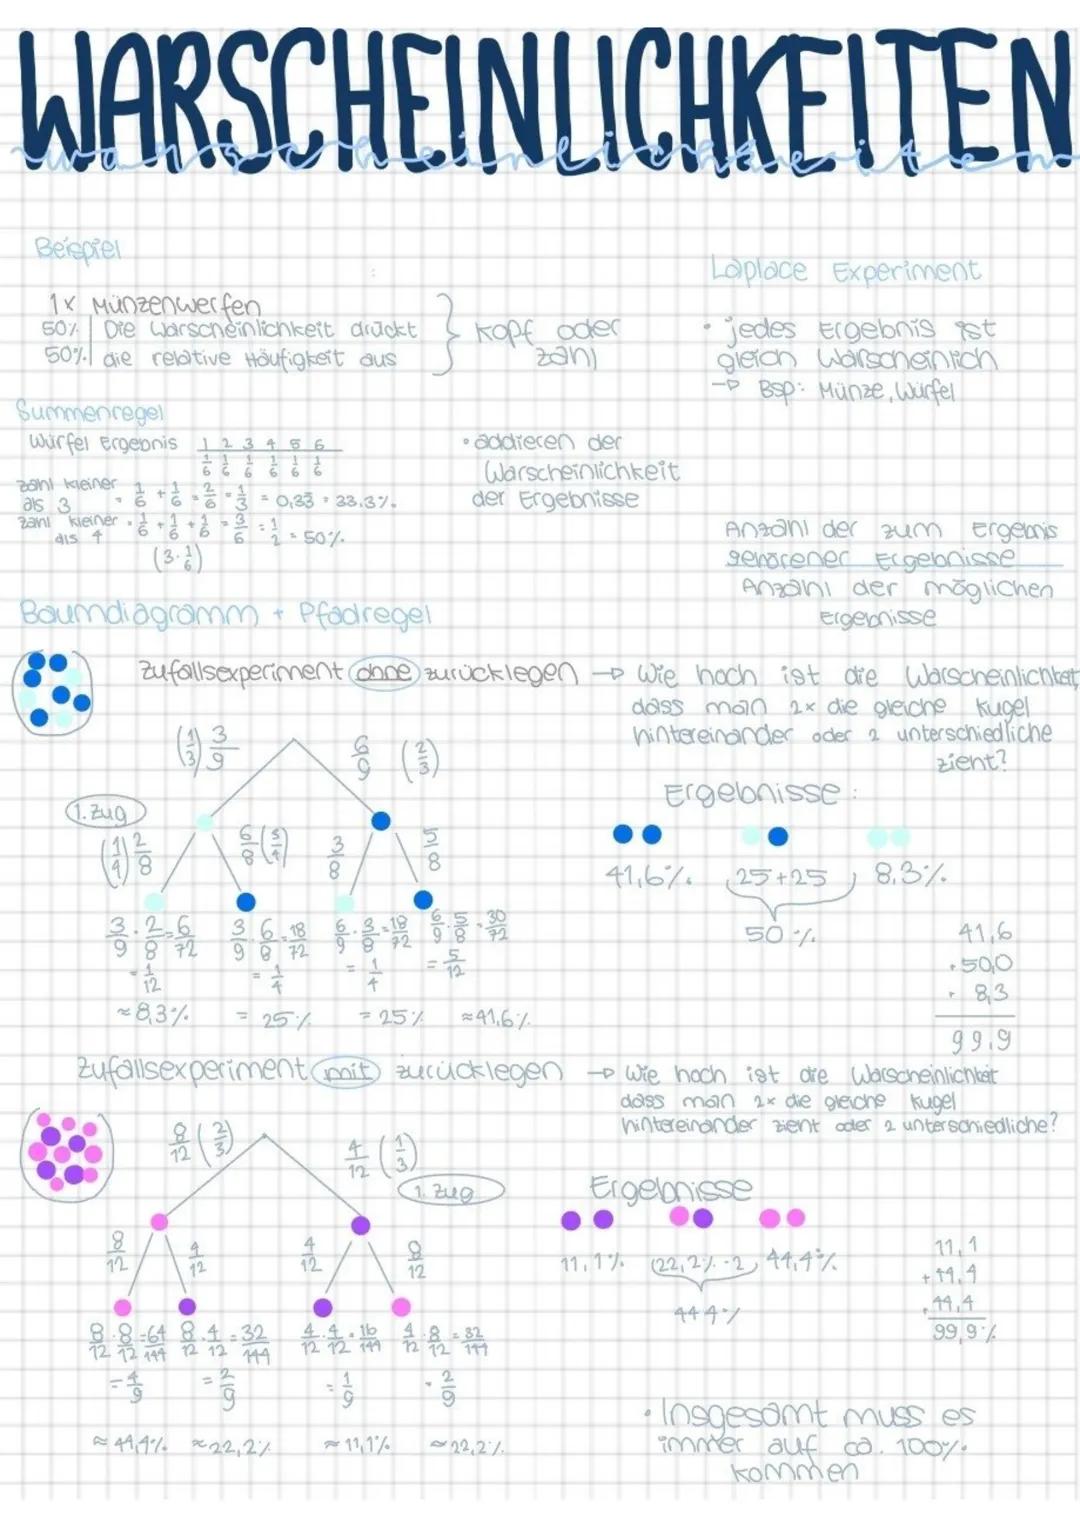 WARSCHEINLICHKEITEN
warscheinlichkeiten
Beispiel
1x Münzenwerfen
50% | Die Warscheinlichkeit drückt
50% | die relative Häufigkeit aus
Kopf oder
Zahl
Laplace Experiment
• jedes Ergebnis ist
gleich Warscheinlich
→ Bsp: Münze, Würfel
Summenregel
Würfel Ergebnis 1 2 3 4 5 6
1/6 1/6 1/6 1/6 1/6 1/6
Zahl kleiner
als 3 = 1/6 + 1/6 = 2/6 = 1/3 = 0,33 = 33,3%
Zahl kleiner
als 4 = 1/6 + 1/6 + 1/6 = 3/6 = 1/2 = 50%
(3·1/6)
• addieren der
Warscheinlichkeit
der Ergebnisse
Anzahl der zum Ergebnis
gehörener Ergebnisse
Anzahl der möglichen
Ergebnisse
Baumdiagramm + Pfadregel
Zufallsexperiment ohne zurücklegen → Wie hoch ist die Warscheinlichkeit,
dass man 2x die gleiche Kugel
hintereinander oder 2 unterschiedliche
zieht?
(1/3) 3/9 6/9 (2/3)
1. Zug
(1/4) 2/8 6/8 (3/4) 3/8 5/8
3/9 · 2/8 = 6/72 3/9 · 6/8 = 18/72 6/9 · 3/8 = 18/72 6/9 · 5/8 = 30/72
= 1/12 = 1/4 = 1/4 = 5/12
≈ 8,3% = 25% = 25% ≈ 41,6%
Ergebnisse:
41,6% 25+25 8,3%
50%
41,6
+50,0
+ 8,3
99,9
Zufallsexperiment mit zurücklegen → Wie hoch ist die Warscheinlichkeit
dass man 2x die gleiche Kugel
hintereinander zieht oder 2 unterschiedliche?
8/12 (2/3) 4/12 (1/3)
1. Zug
8/12 4/12 4/12 8/12
8/12 · 8/12 = 64/144 8/12 · 4/12 = 32/144 4/12 · 4/12 = 16/144 4/12 · 8/12 = 32/144
= 4/9 = 2/9 = 1/9 = 2/9
≈ 44,4% ≈ 22,2% ≈ 11,1% ≈ 22,2%
Ergebnisse
11,1% (22,2% · 2) 44,4%
44,4%
11,1
+ 44,4
+ 44,4
99,9%
• Insgesamt muss es
immer auf ca. 100%
kommen